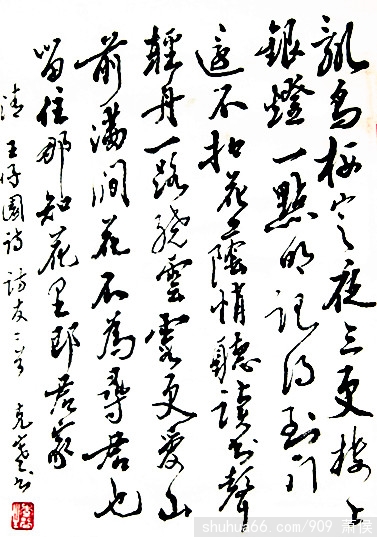 亂烏栖定夜三更樓上
銀燈一點明記得到門
還不扣花蔭悄聽讀書聲
輕舟一路繞雲霞更愛山
前滿澗花不為尋君也
留住那知花里即君家
清 王仔園詩 訪友二首 克書
shuhua66.com/909 萧侯